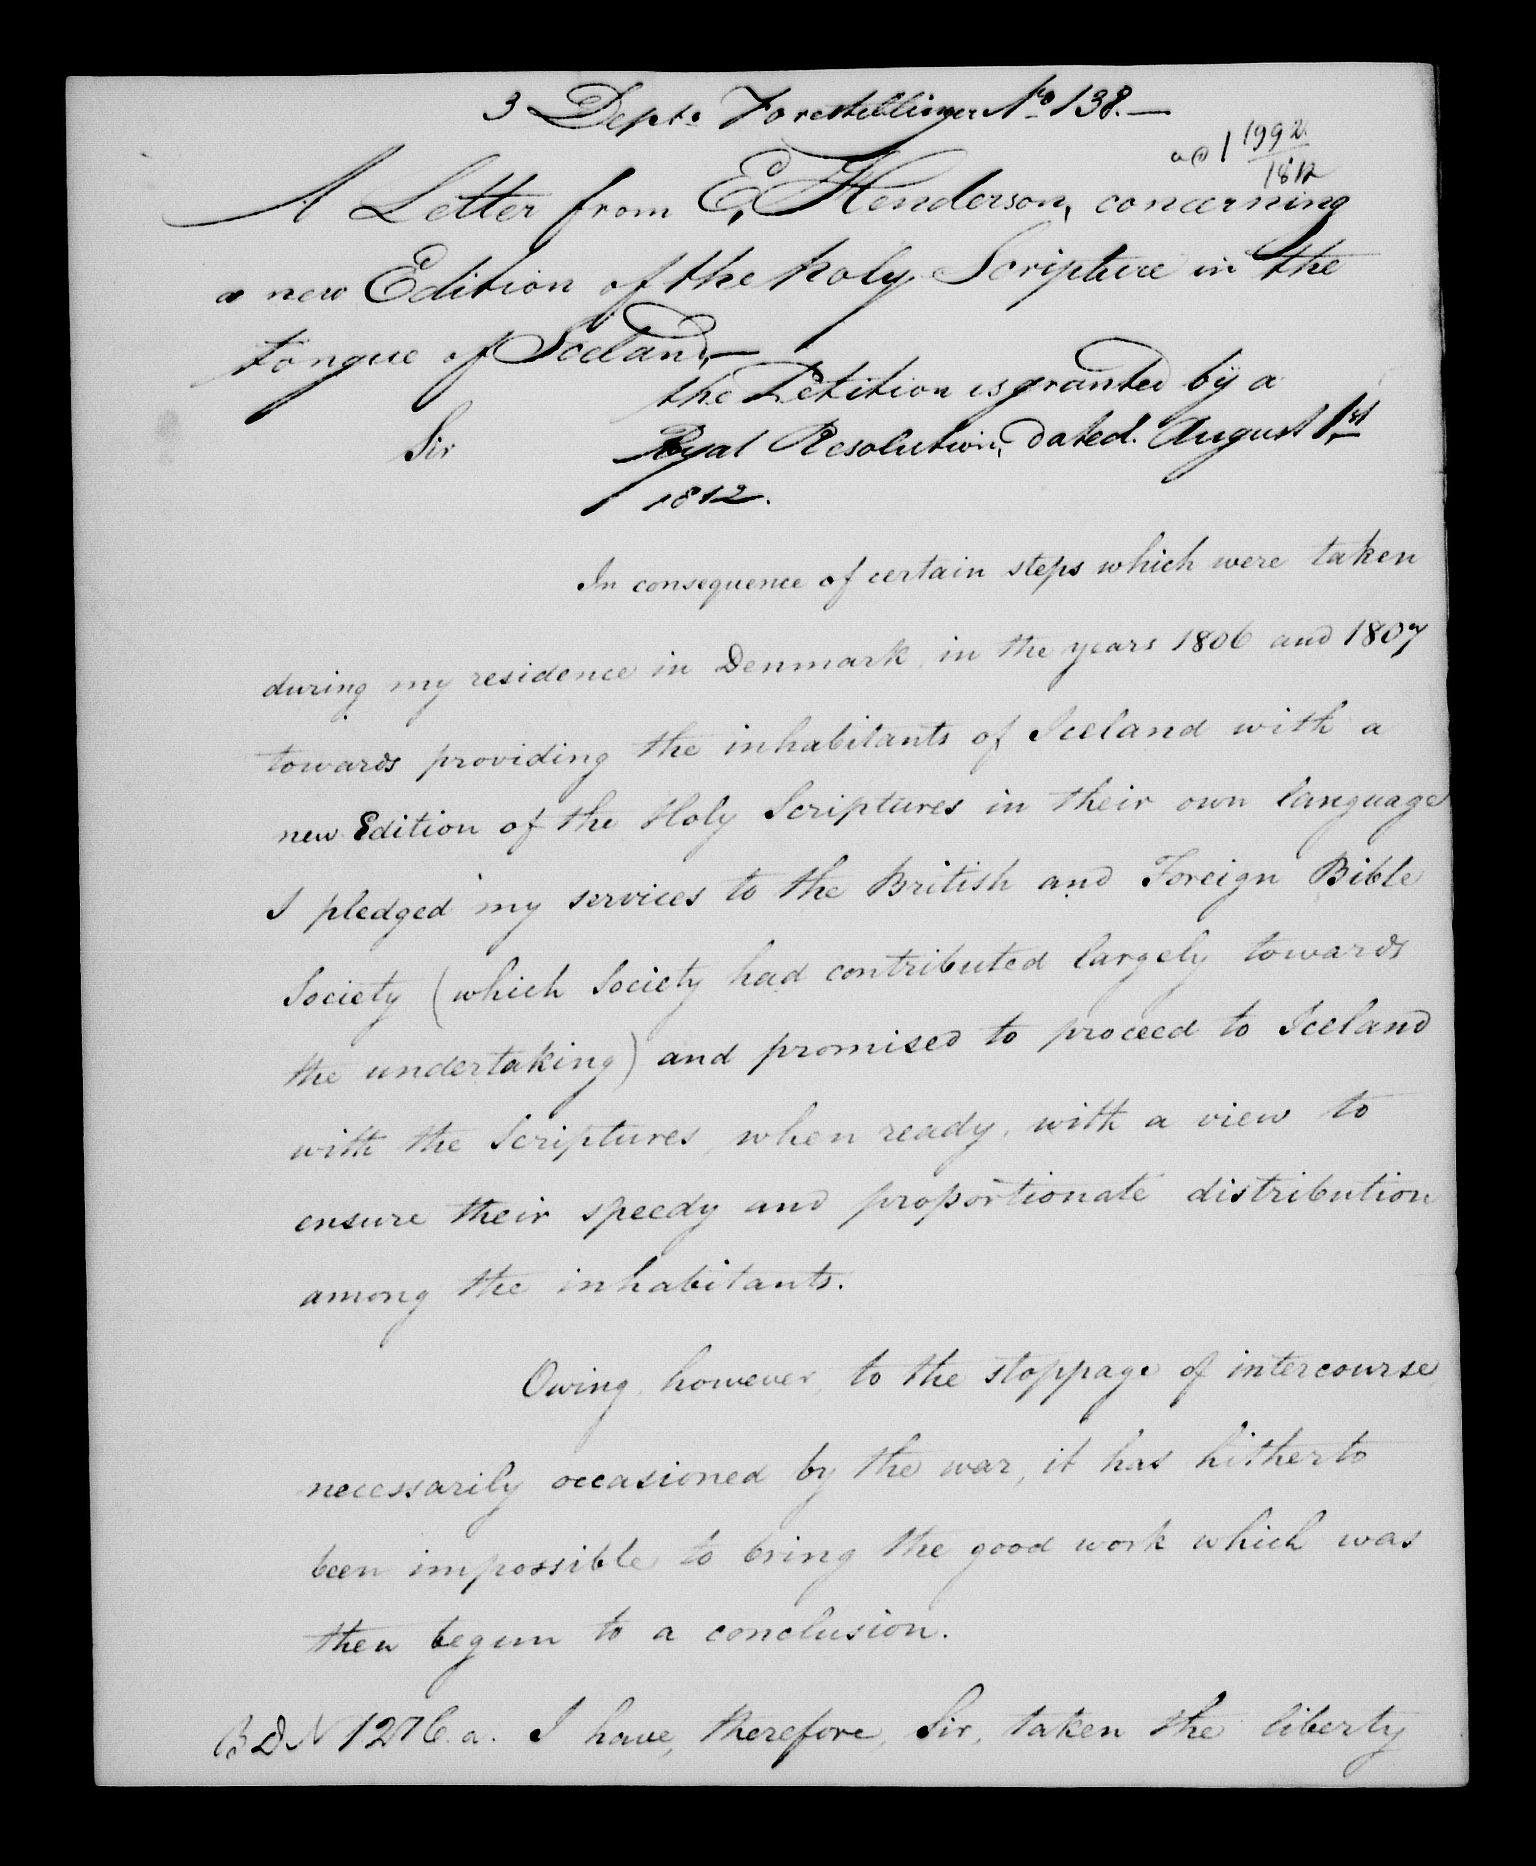 3 Depts Forestillinger No 138.—
ad 1 1992/1812
A Letter from E, Henderson, concerning
a new Edition of the holy Scripture in the
tongue of Iceland,—
the Petition is granted by a
Sir Royal Resolution, dated. August 1st
1812.
In consequence of certain steps which were taken
during my residence in Denmark, in the years 1806 and 1807
towards providing the inhabitants of Iceland with a
new Edition of the Holy Scriptures in their own language
I pledged my services to the British and Foreign Bible
Society (which Society had contributed largely towards
the undertaking) and promised to proceed to Iceland
with the Scriptures, when ready, with a view to
ensure their speedy and proportionate distribution
among the inhabitants.
Owing, however, to the stoppage of intercourse,
necessarily occasioned by the war, it has hitherto
been impossible to bring the good work which was
then begun to a conclusion.
B D N 1276.a. I have, therefore, Sir, taken the liberty